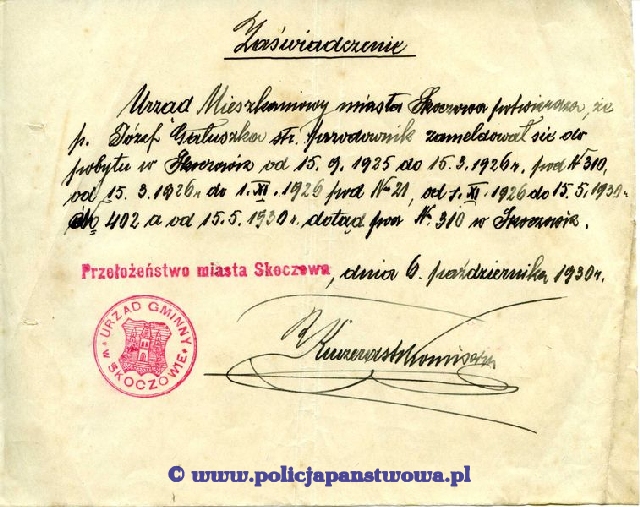 Zaświadczenie
Urząd Mieszkaniowy miasta Skoczowa potwierdza, że
p. Józef Gałuszka st. przodownik zameldował się do
pobytu w Skoczowie od 15.9.1925 do 15.3.1926 r. pod № 310,
od 15.3.1926 r. do 1.XI.1926 pod № 21, od 1.XI.1926 do 15.5.1930 r.
№ 402 a od 15.5.1930 r. dotąd pod № 310 w Skoczowie.
Przełożeństwo miasta Skoczowa, dnia 6. października 1930 r.
URZĄD GMINNY
W SKOCZOWIE
© www.policjapanstwowa.pl